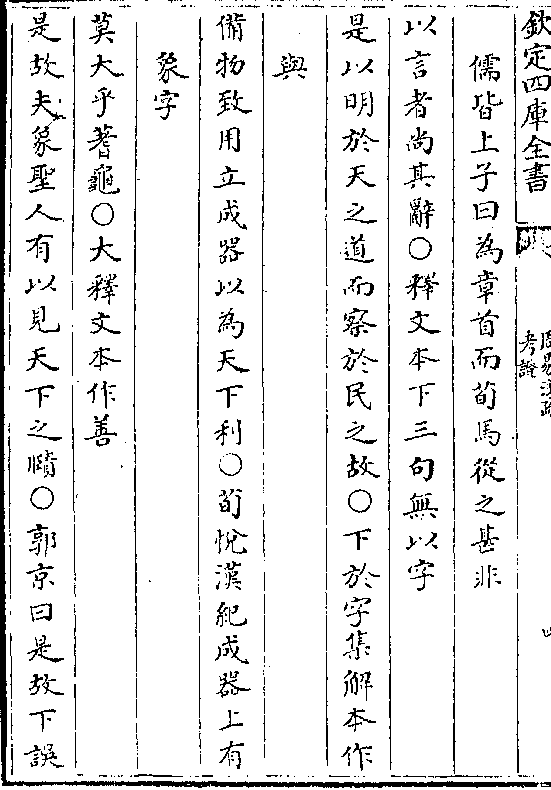 欽定四庫全書
周易注疏
考證
儒皆上子曰為章首而荀馬從之甚非
以言者尚其辭○釋文本下三句無以字
是以明於天之道而察於民之故○下於字集解本作
與
備物致用立成器以為天下利○荀悅漢紀成器上有
象字
莫大乎蓍龜○大釋文本作善
是故夫象聖人有以見天下之賾○郭京曰是故下誤